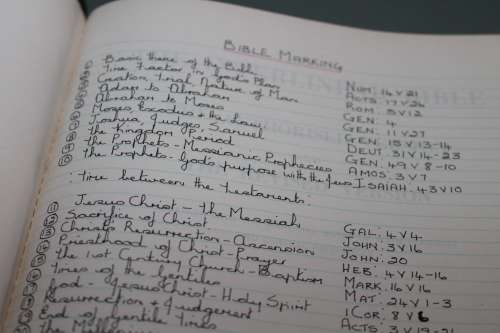 BIBLE MARKING
① Basic theme of the Bible NUM: 14 v 21
② Time Factor in God's Plan ACTS: 17 v 26
③ Creation, Nature of Man ROM. 5 v 12
④ Adam to Abraham GEN. 4
⑤ Abraham to Moses GEN. 11 v 27
⑥ Moses, Exodus & the Law GEN: 15 v 13-14
⑦ Joshua, Judges, Samuel DEUT. 31 v 14-23
⑧ the Kingdom Period GEN. 49 v 8-10
⑨ the Prophets - Messianic Prophecies AMOS. 3 v 7
⑩ the Prophets - God's purpose with the Jews ISAIAH. 43 v 10
: Time between the Testaments:
⑪ Jesus Christ - the Messiah GAL: 4 v 4
⑫ Sacrifice of Christ JOHN: 3 v 16
⑬ Christ's Resurrection - Ascension JOHN: 20
⑭ Priesthood of Christ - Prayer HEB: 4 v 14-16
⑮ The 1st Century Church - Baptism MARK. 16 v 16
⑯ Times of the Gentiles MAT. 24 v 1-3
⑰ God - Jesus Christ - Holy Spirit 1 COR: 8 v 6
⑱ Resurrection & Judgement ACTS 3 v 19-21
End of Gentile Times
The